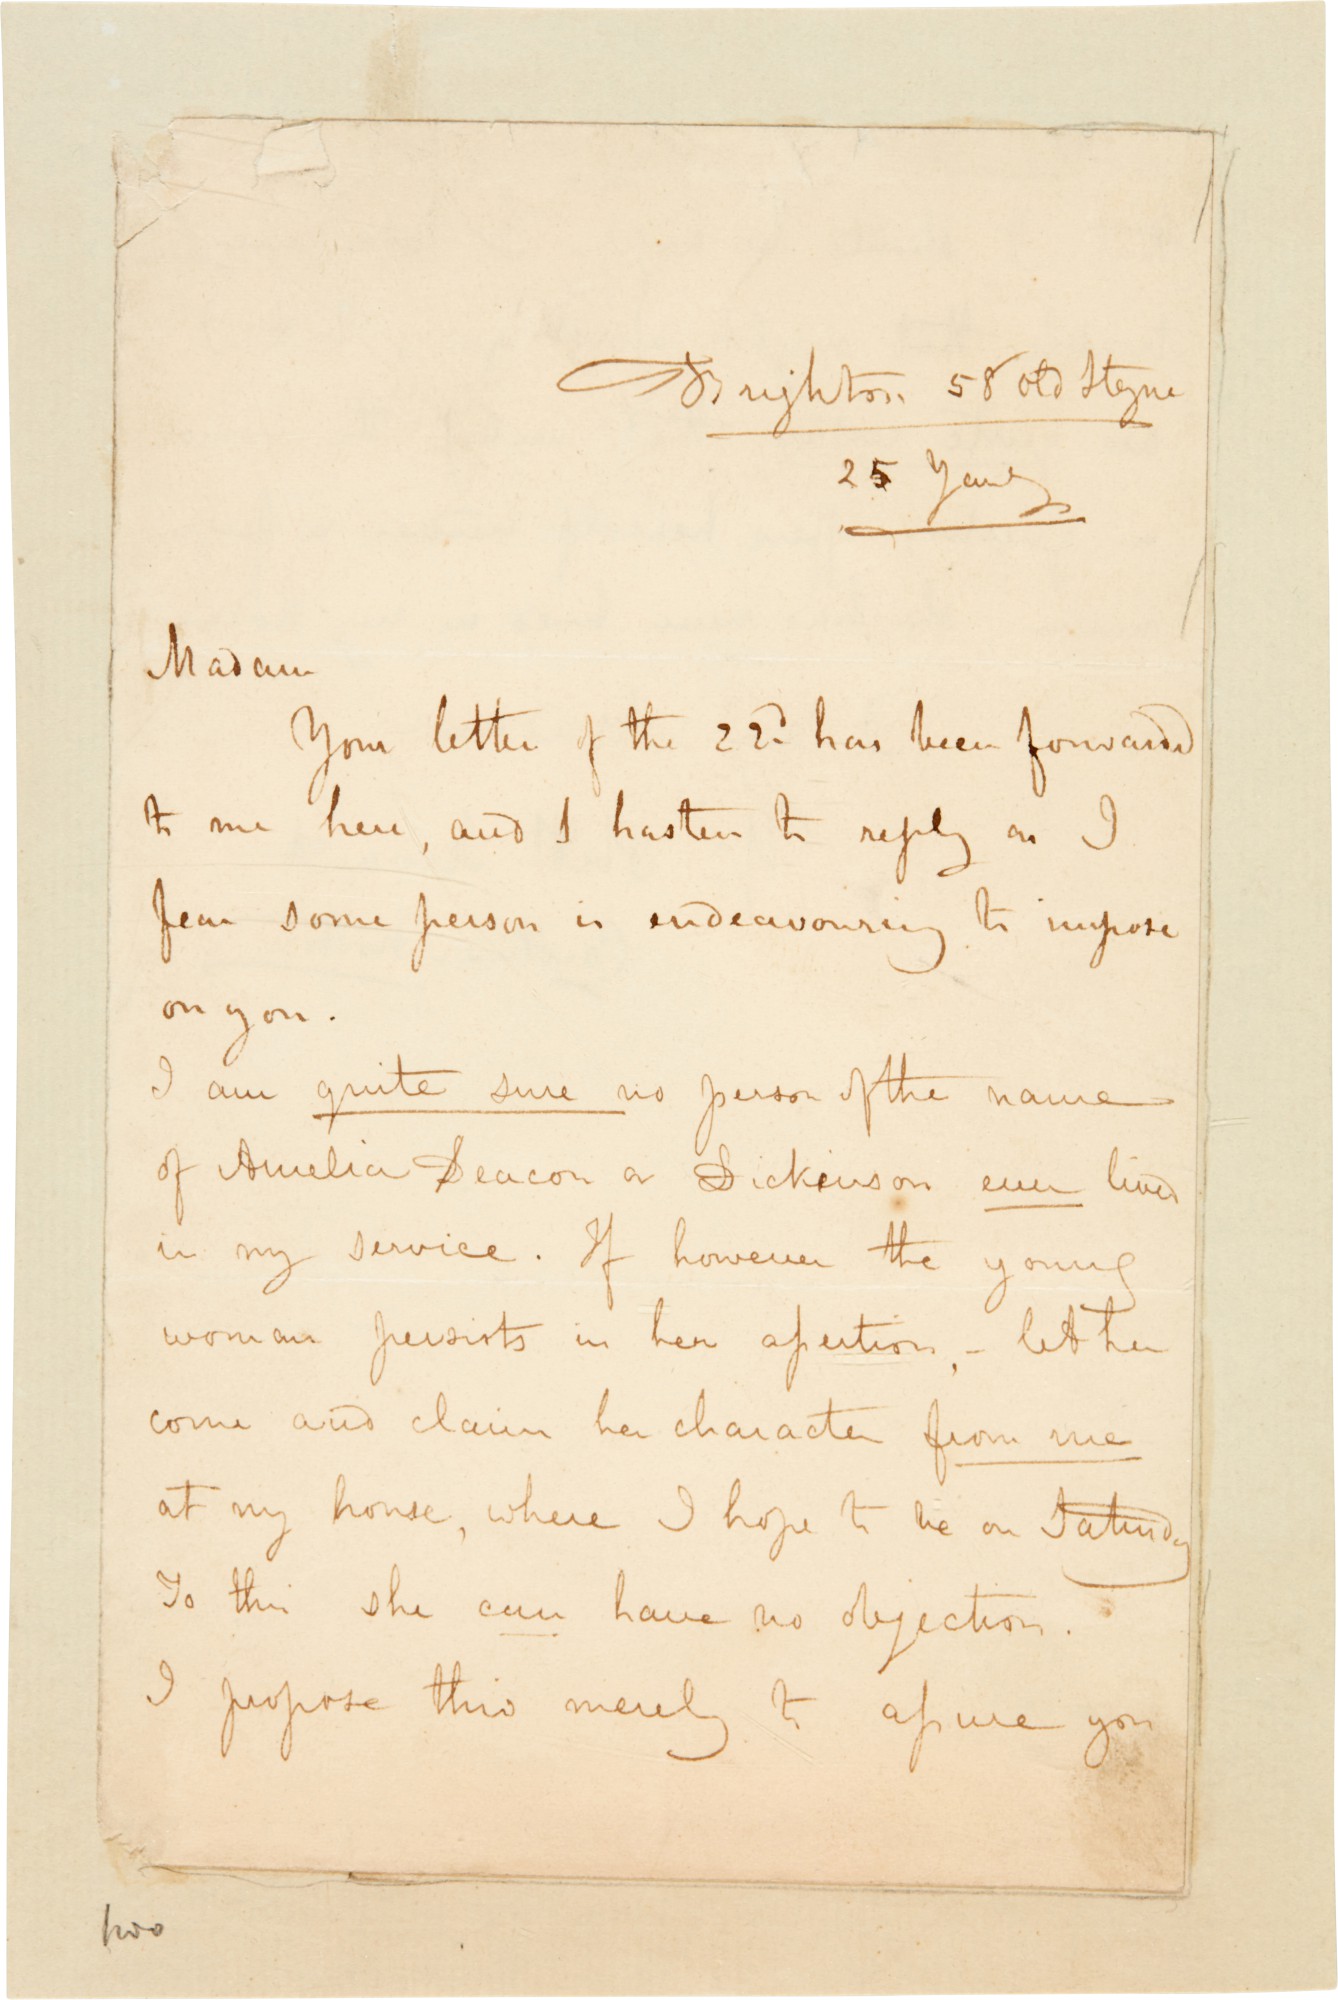 Brighton 58 Old Steyne
25 Jany
Madam
Your letter of the 22d has been forwarded
to me here, and I hasten to reply as I
fear some person is endeavouring to impose
on you.
I am quite sure no person of the name
of Amelia Deacon or Dickinson ever lived
in my service. If however the young
woman persists in her assertion, – let her
come and claim her character from me
at my house, where I hope to be on Saturday
To this she can have no objection.
I propose this merely to assure you